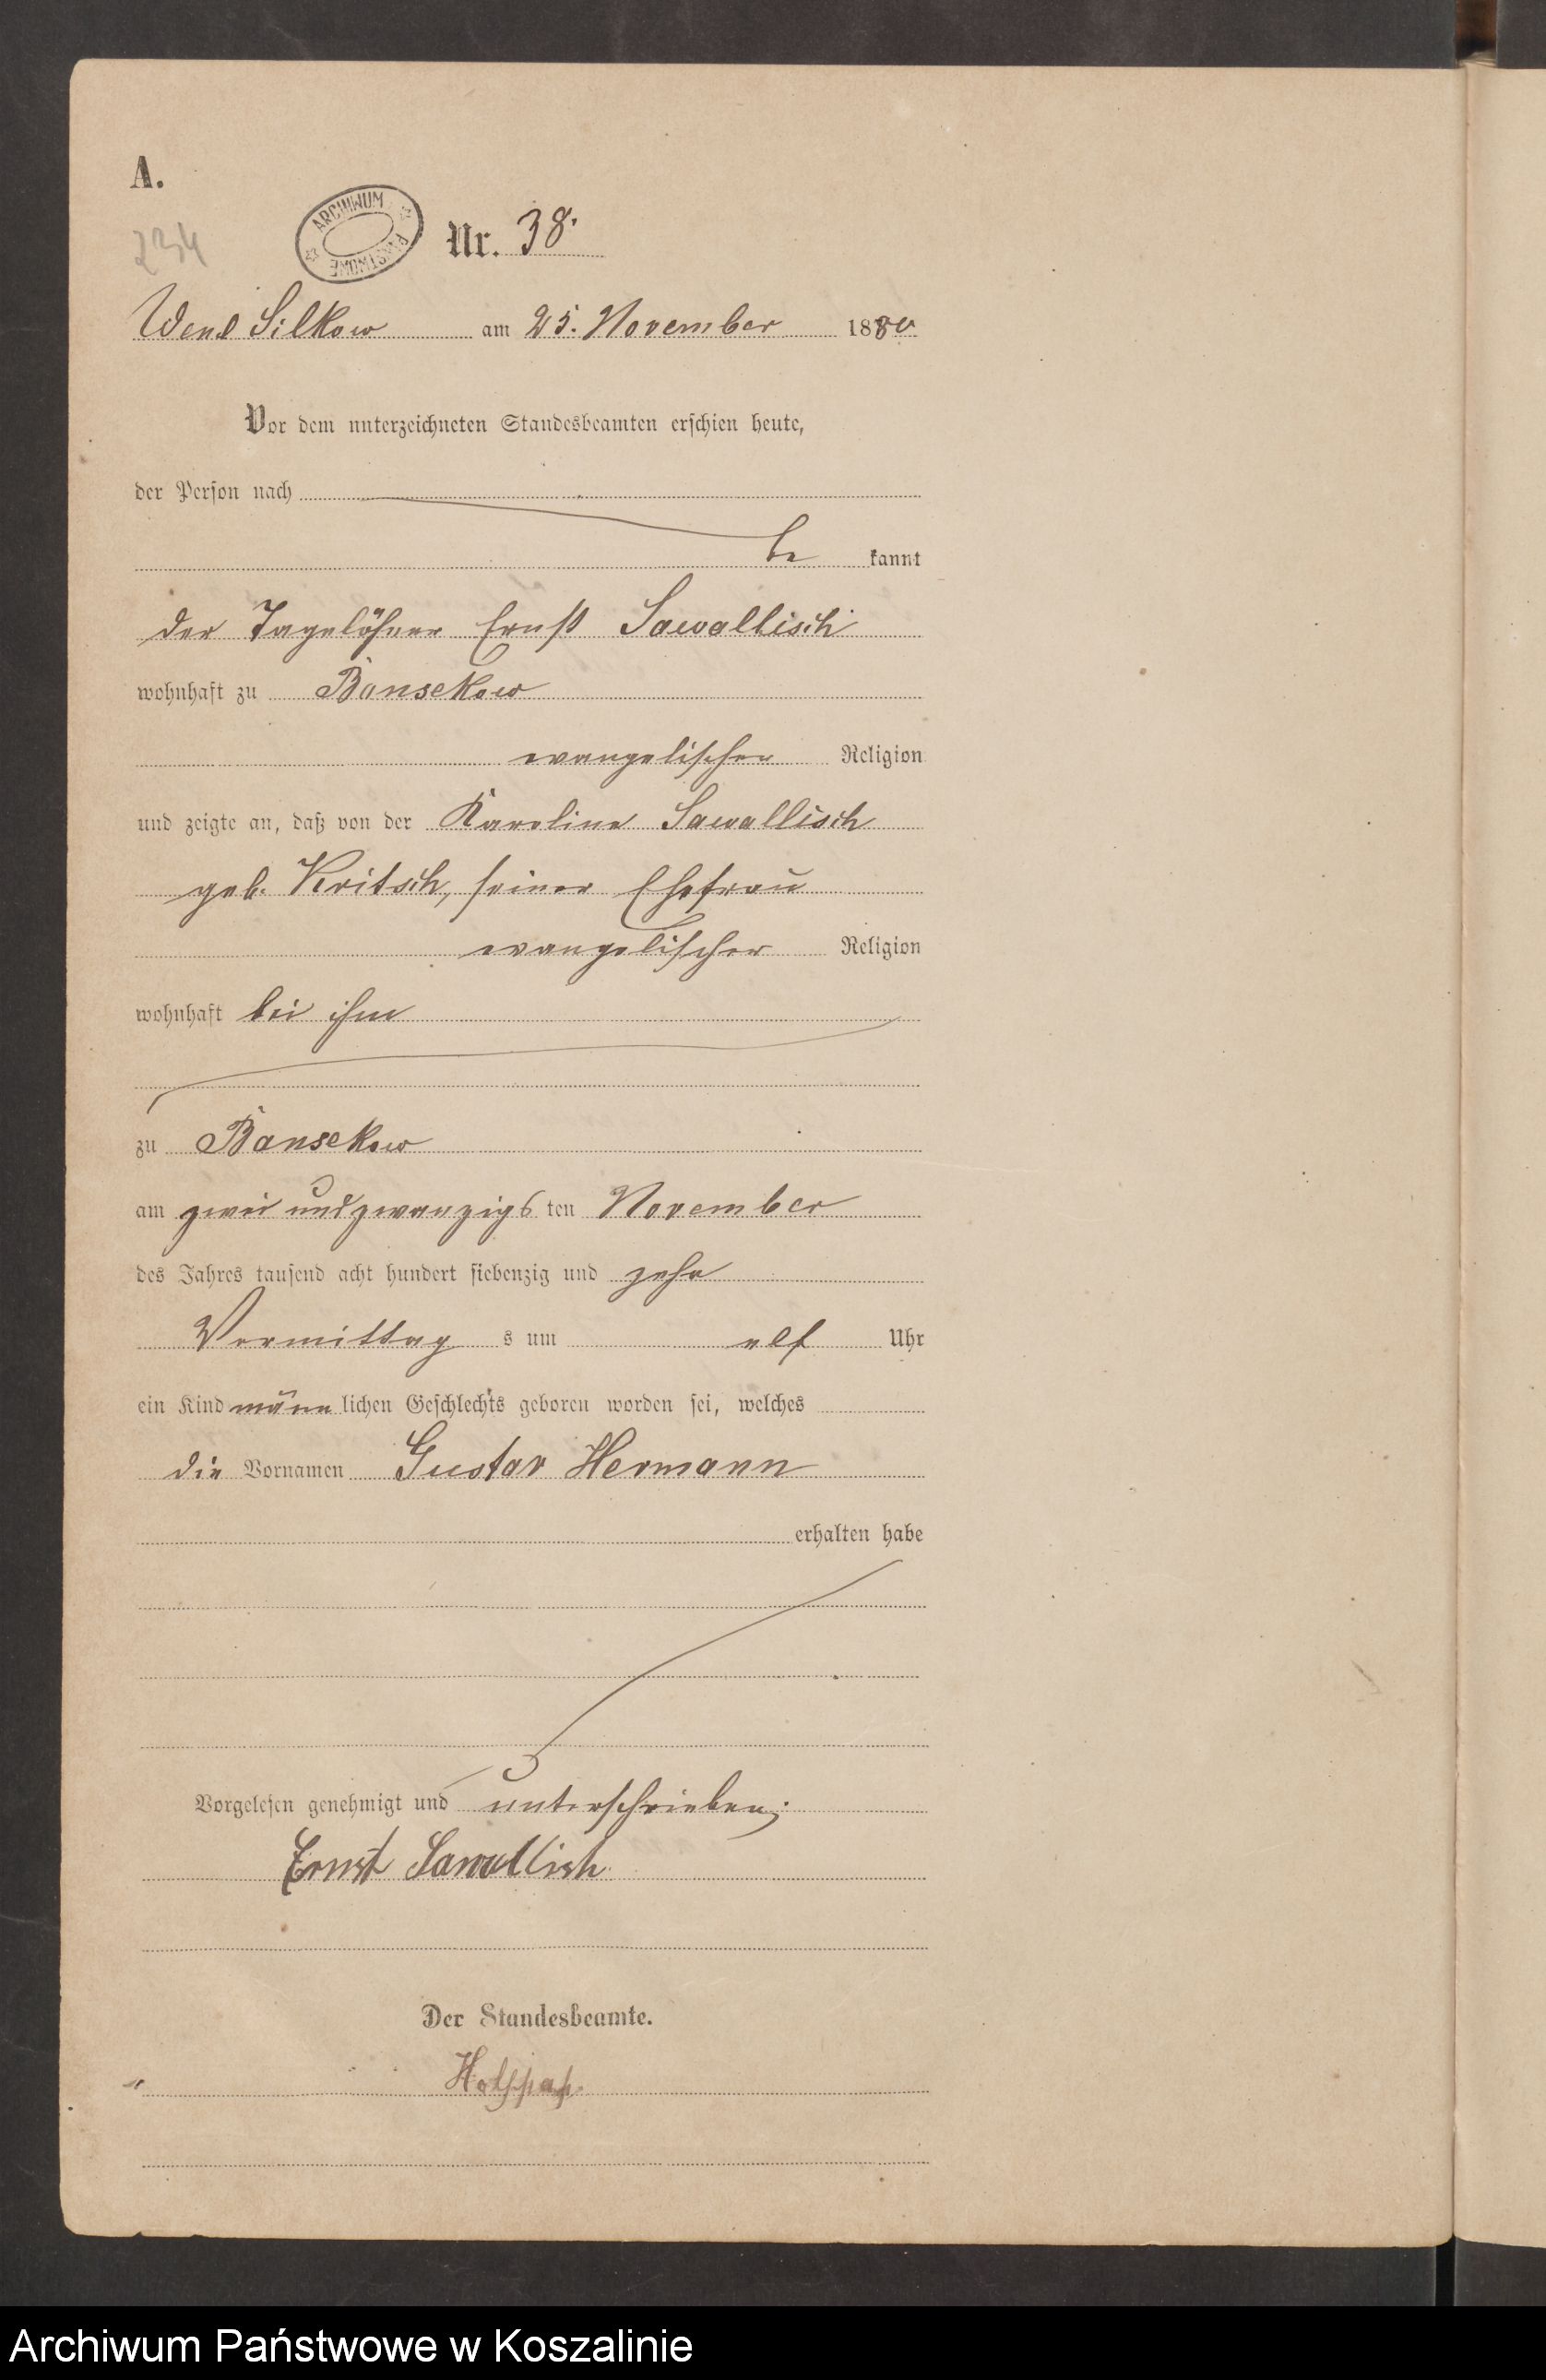 A.
234
ARCHIWUM PAŃSTWOWE
Nr. 38.
Wend Silkow am 25. November 1880
Vor dem unterzeichneten Standesbeamten erschien heute,
der Person nach
be kannt
der Tagelöhner Ernst Sawallisch
wohnhaft zu Bansekow
evangelischer Religion
und zeigte an, daß von der Karoline Sawallisch
geb. Kritsch, seiner Ehefrau
evangelischer Religion
wohnhaft bei ihm
zu Bansekow
am zwei und zwanzigs ten November
des Jahres tausend acht hundert siebenzig und zehn
Vormittag s um elf Uhr
ein Kind männ lichen Geschlechts geboren worden sei, welches
die Vornamen Gustav Hermann
erhalten habe
Vorgelesen genehmigt und unterschrieben;
Ernst Sawallish
Der Standesbeamte.
Archiwum Państwowe w Koszalinie